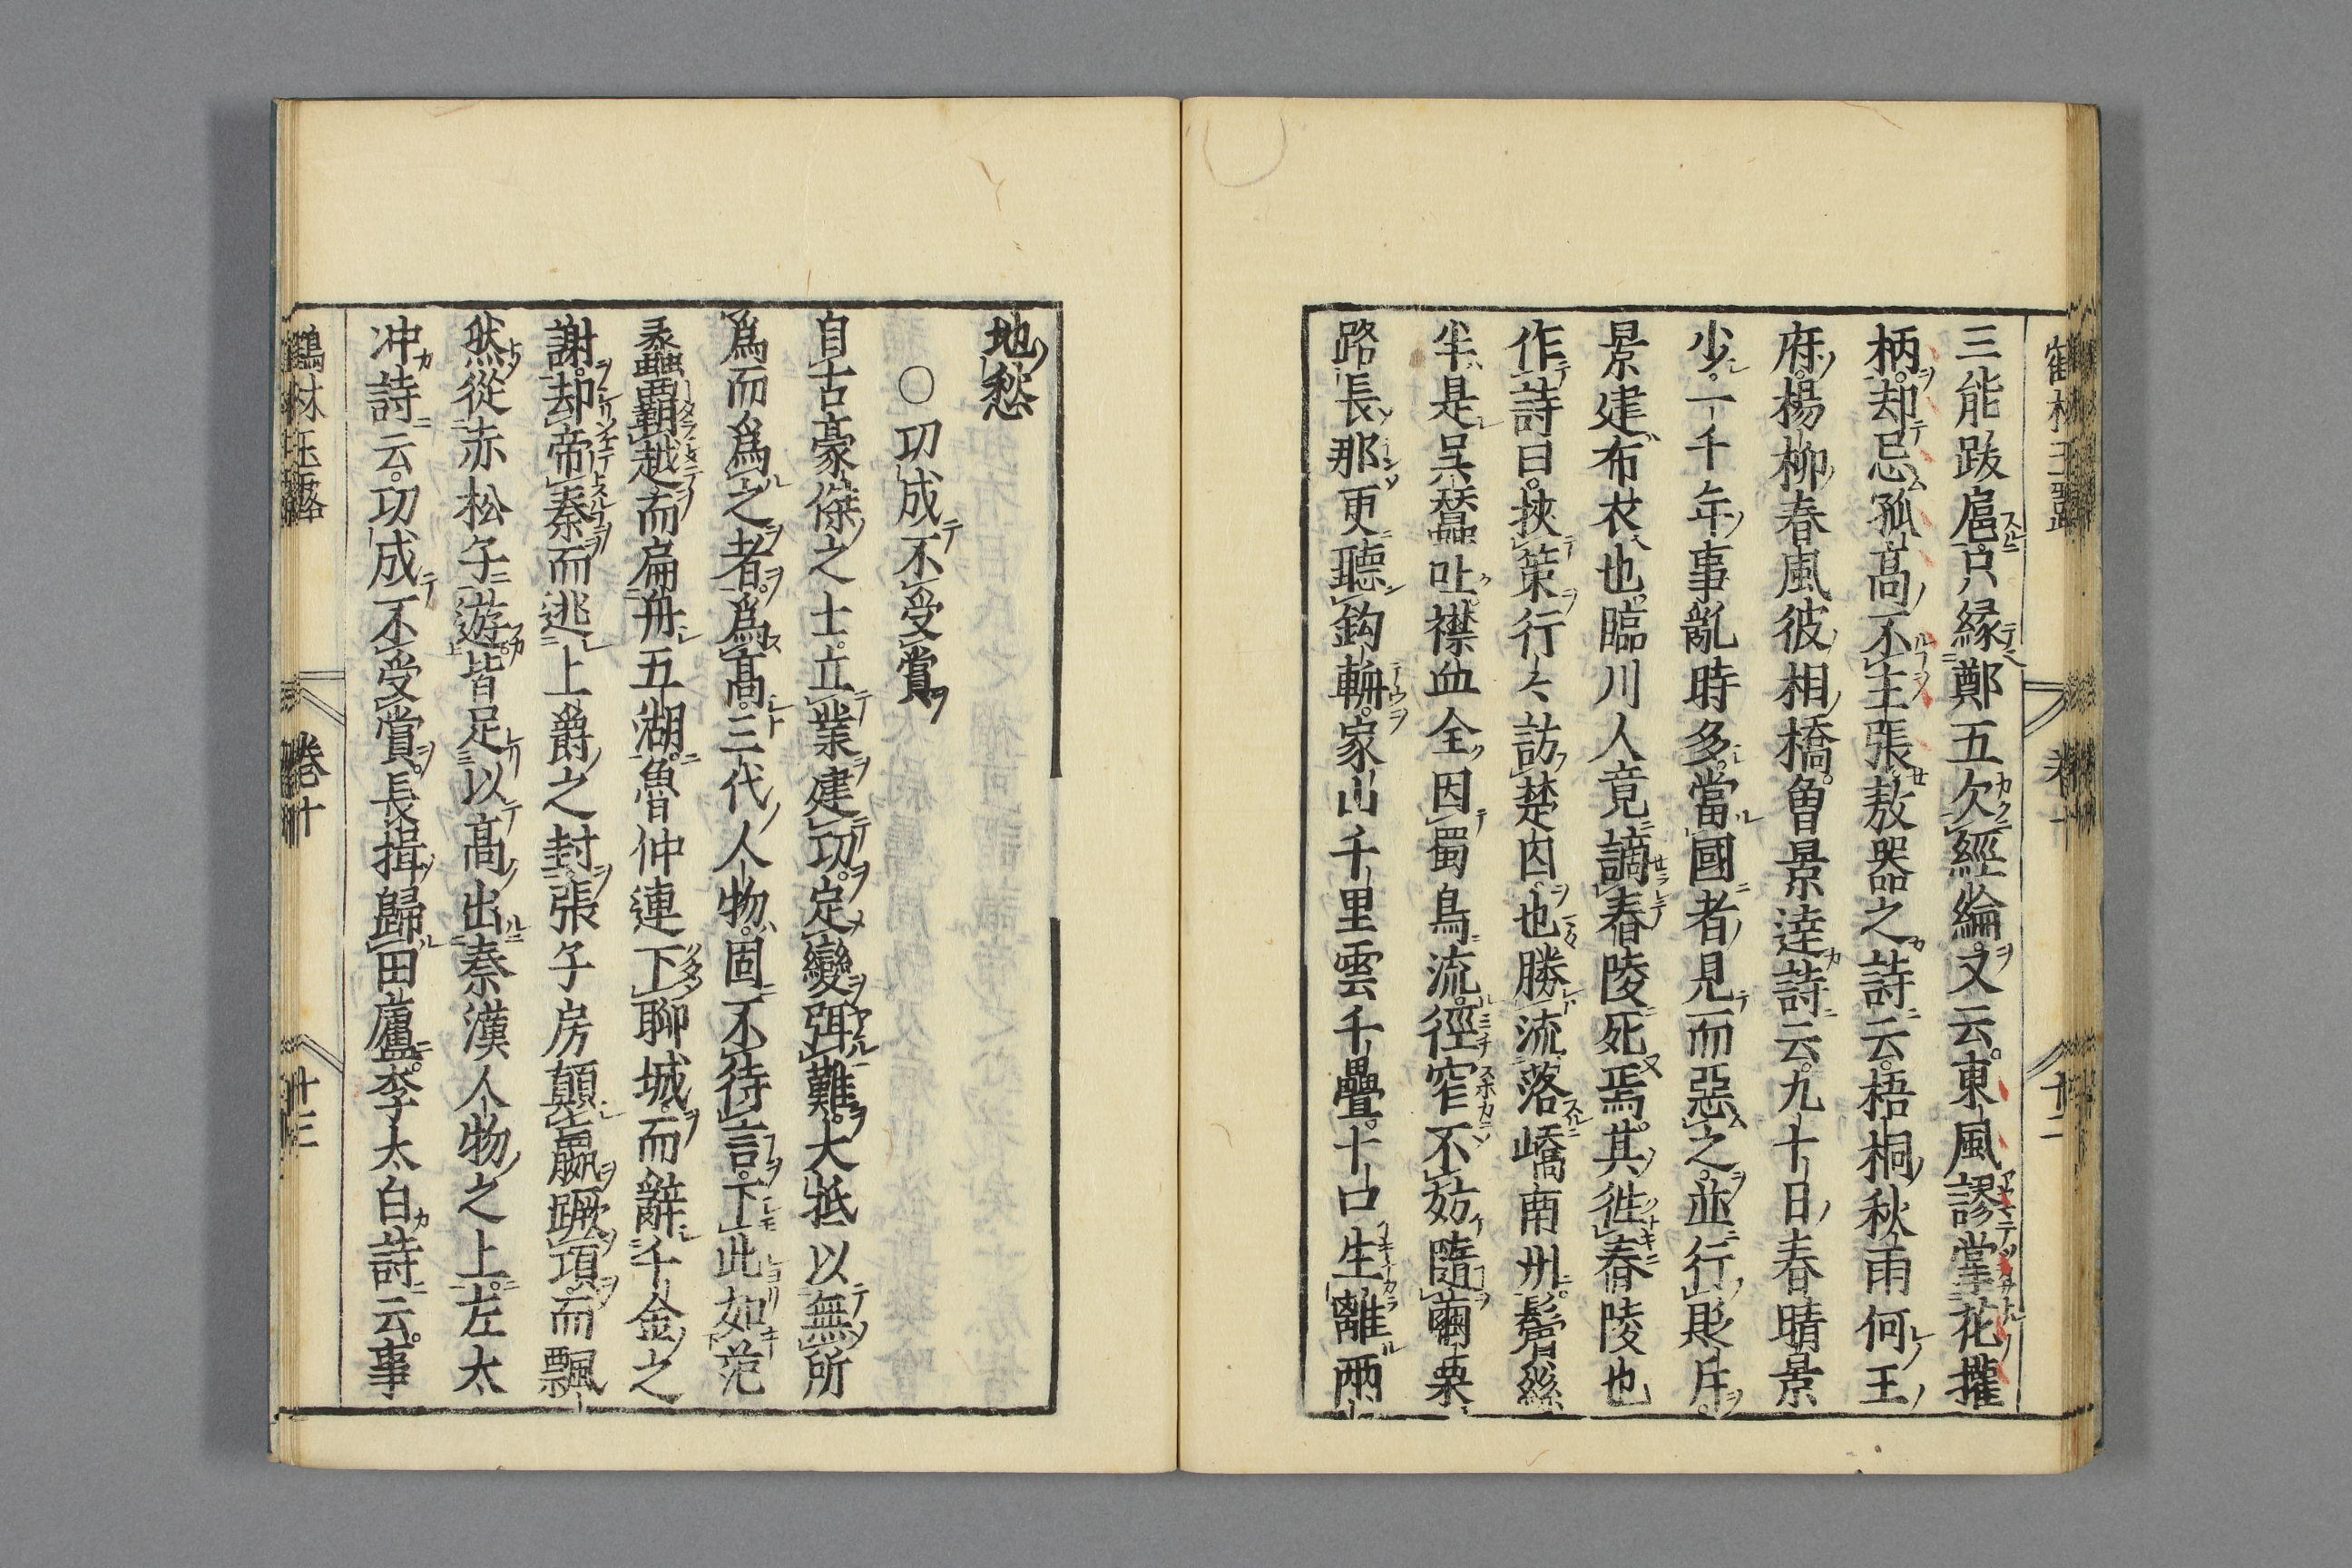 鶴林玉露　卷十　十二
三能跋扈。只縁鄭五欠經綸。又云。東風謬掌花權
柄。却忌孤高不主張。敖器之詩云。梧桐秋雨何王
府。楊柳春風彼相橋。曾景逹詩云。九十日春晴景
少。一千年事亂時多。當國者見而惡之。並行貶斥。
景建布衣也。臨川人竟謫春陵死焉。其徃春陵也
作詩曰。挾策行〻訪楚囚。也勝流落嶠南州。鬢絲
半是呉蠶吐。襟血全因蜀鳥流。徑窄不妨隨繭栗
路長那更聽鈎輈。家山千里雲千疊。十口生離兩
地愁
○功成不受賞
自古豪傑之士。立業建功。定變弭難。大抵以無所
爲而爲之者。爲高。三代人物。固不待言。下此如范
蠡覇越而扁舟五湖。魯仲連下聊城。而辭千金之
謝。却帝秦而逃上爵之封。張子房顛嬴蹶項。而飄
然從赤松子遊。皆足以高出秦漢人物之上。左太
冲詩云。功成不受賞。長揖歸田廬。李太白詩云。事
鶴林玉露　卷十　十三